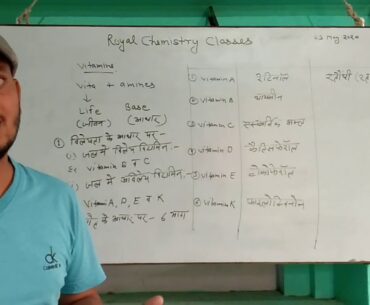 Royal Chemistry Classes
23 May 2020
Vitamins
Vita + amines
Life Base
(जीवन) (आधार)
① विलेयता के आधार पर :-
(i) जल में विलेय विटामिन :-
Ex Vitamin B व C
(ii) जल में अविलेय विटामिन :-
Vitamin A, D, E व K
के आधार पर - 6 भाग
① Vitamin A रेटिनॉल रतौंधी
② Vitamin B थायमीन
③ Vitamin C एस्कार्बिक अम्ल
④ Vitamin D कैल्सिफेरॉल
⑤ Vitamin E टोकोफेरॉल
⑥ Vitamin K
dk